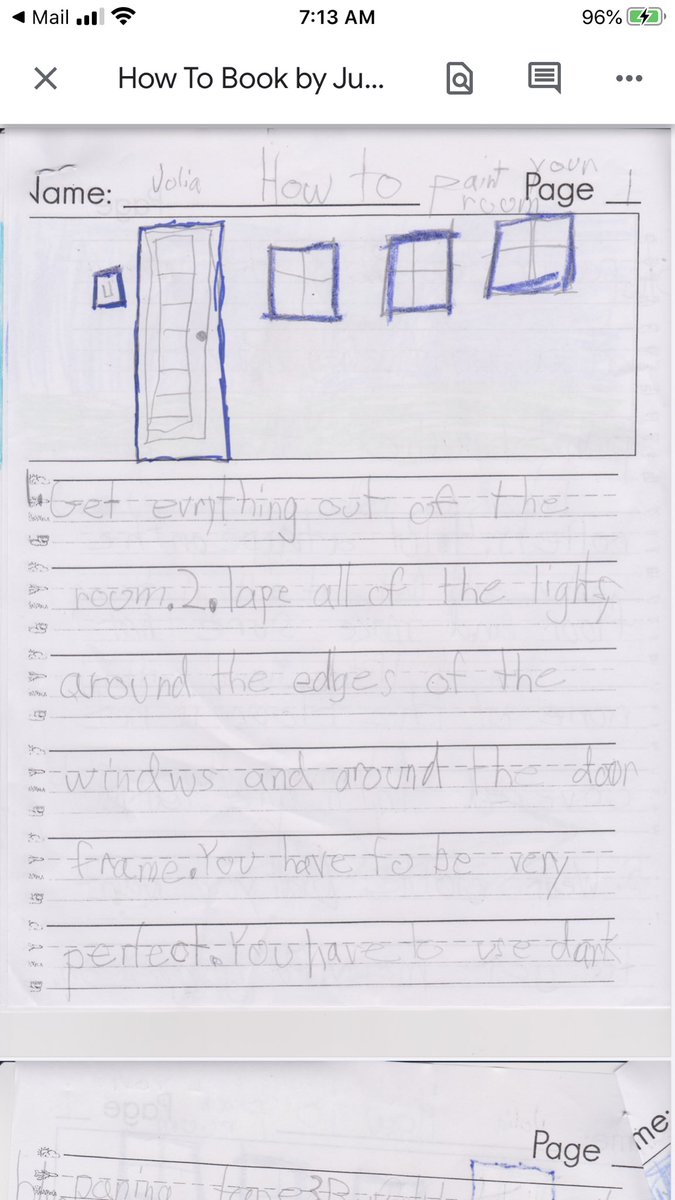 Mail 7:13 AM 96%
How To Book by Ju...
Name: Julia How to paint your room Page 1
1. Get evrything out of the
room. 2. Tape all of the lights
around the edges of the
windws and around the door
frame. You have to be very
perfect. You have to use dark
Page
me: